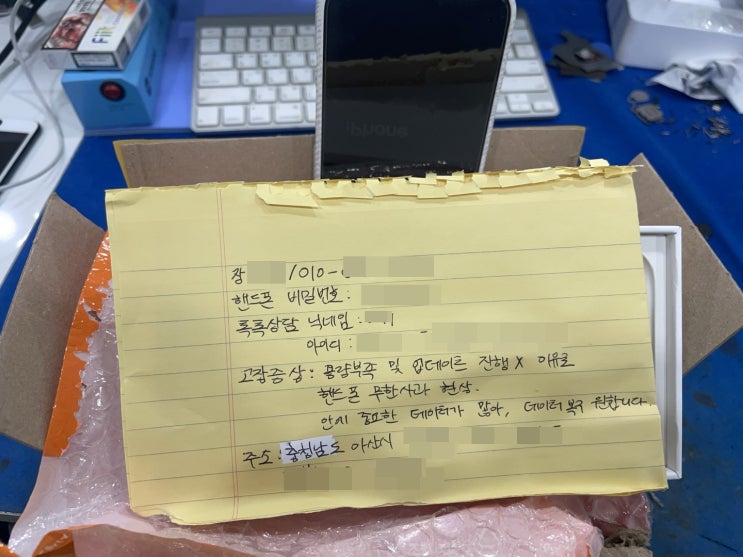 FiiT
iPhone
장 /010-
핸드폰 비밀번호 :
톡톡상담 닉네임 :
아이디 :
고장증상 : 용량부족 및 업데이트 진행 X 이유로
핸드폰 무한사과 현상.
안에 중요한 데이터가 많아, 데이터 복구 원합니다.
주소 : 충청남도 아산시